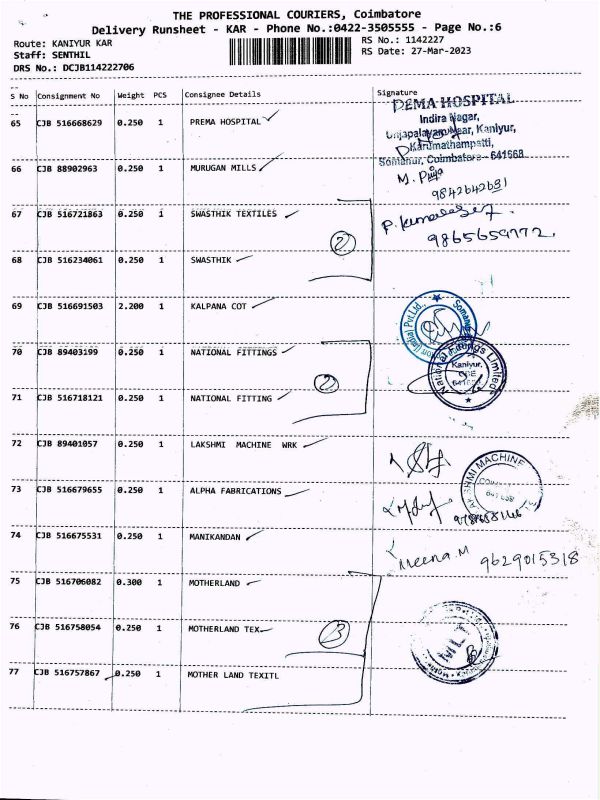 THE PROFESSIONAL COURIERS, Coimbatore
Delivery Runsheet - KAR - Phone No.:0422-3505555 - Page No.:6
Route: KANIYUR KAR
RS No.: 1142227
Staff: SENTHIL
RS Date: 27-Mar-2023
DRS No.: DCJB114222706
S No Consignment No Weight PCS Consignee Details Signature
65 CJB 516668629 0.250 1 PREMA HOSPITAL
HOSPITAL
Indira Nagar,
Kaniyur,
Karumathampatti,
Somanur, Coimbatore - 641668
66 CJB 88902963 0.250 1 MURUGAN MILLS
M. Priya
67 CJB 516721863 0.250 1 SWASTHIK TEXTILES
9865659772.
2
68 CJB 516234061 0.250 1 SWASTHIK
69 CJB 516691503 2.200 1 KALPANA COT
70 CJB 89403199 0.250 1 NATIONAL FITTINGS
National Fittings Limited
Kaniyur,
2
71 CJB 516718121 0.250 1 NATIONAL FITTING
72 CJB 89401057 0.250 1 LAKSHMI MACHINE WRK
LAKSHMI MACHINE
73 CJB 516679655 0.250 1 ALPHA FABRICATIONS
74 CJB 516675531 0.250 1 MANIKANDAN
Meena.M 9629015318
75 CJB 516706082 0.300 1 MOTHERLAND
76 CJB 516758054 0.250 1 MOTHERLAND TEX
3
MLT
77 CJB 516757867 0.250 1 MOTHER LAND TEXITL